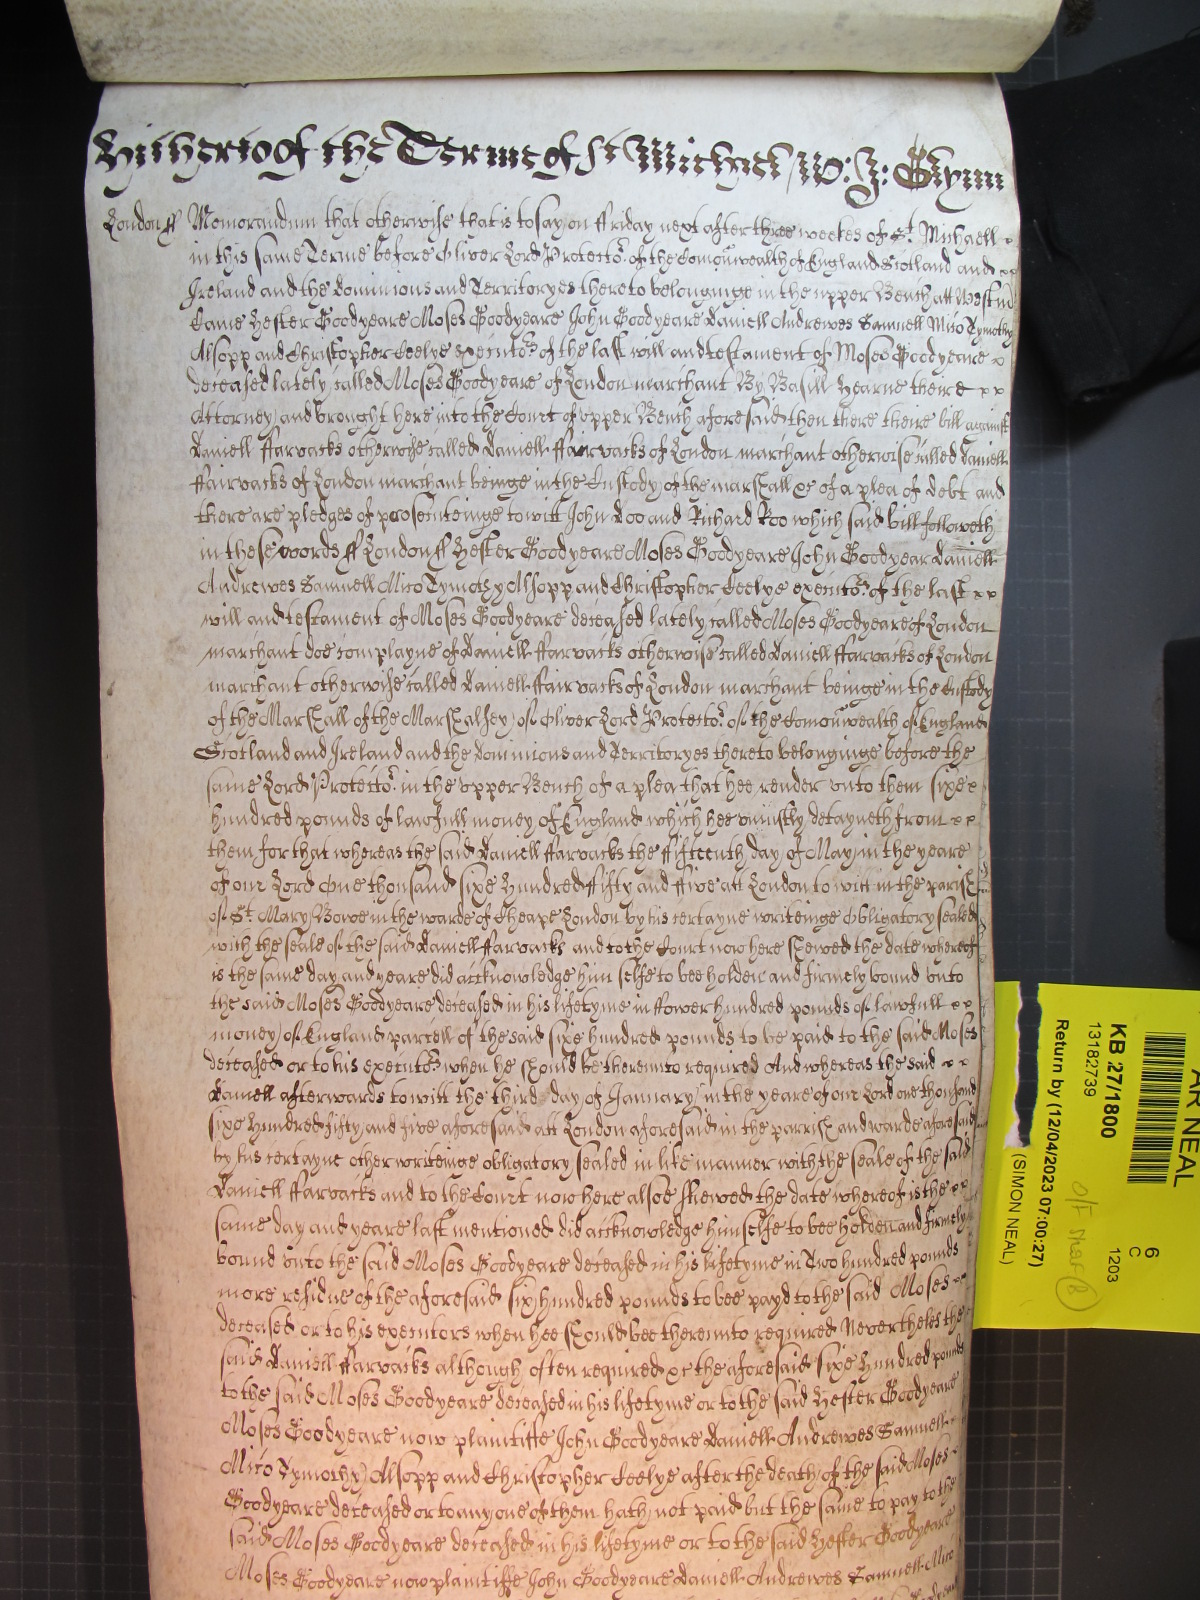 Hitherto of the Terme of St Michael W: J: Glynn
London ss Memorandum that otherwise that is to say on ffriday next after three weekes of St. Michaell x
in this same Terme before Oliver Lord Protector. of the Comonwealth of England Scotland and xx
Ireland and the Dominions and Territoryes thereto belonginge in the upper Bench att Westmr
Came Hester Goodyeare Moses Goodyeare John Goodyeare Daniell Andrewes Samuell Mico Tymothy
Alsopp and Christopher Ceelye executors of the last will and testament of Moses Goodyeare x
deceased lately called Moses Goodyeare of London marchant By Basill Hearne there xx
Attorney and brought here into the Court of upper Bench aforesaid then there theire bill against
Daniell ffarvacks otherwise called Daniell ffairvacks of London marchant otherwise called Daniell
ffairvacks of London marchant beinge in the Custody of the marshall &c of a plea of debt and
there are pledges of prosecuteinge to witt John Doo and Richard Roo which said bill followeth
in these words ss London ss Hester Goodyeare Moses Goodyeare John Goodyear Daniell
Andrewes Samuell Mico Tymothy Alsopp and Christopher Ceelye executors of the last xx
will and testament of Moses Goodyeare deceased lately called Moses Goodyeare of London
marchant doe complayne of Daniell ffarvacks otherwise called Daniell ffarvacks of London
marchant otherwise called Daniell ffairvacks of London marchant beinge in the Custody
of the Marshall of the Marshalsey of Oliver Lord Protector. of the Comonwealth of England
Scotland and Ireland and the Dominions and Territoryes thereto belonginge before the
same Lord Protector. in the upper Bench of a plea that hee render unto them sixe x
hundred pounds of lawfull money of England which hee uniustly detayneth from xx
them for that whereas the said Daniell ffarvacks the fifteenth day of May in the yeare
of our Lord One thousand sixe hundred fifty and ffive att London to witt in the parish
of St. Mary Bowe in the warde of Cheape London by his certayne writeinge Obligatory sealed
with the seale of the said Daniell ffarvacks and to the Court now here shewed the date whereof
is the same day and yeare did acknowledge him selfe to bee holden and firmely bound unto
the said Moses Goodyeare deceased in his lifetyme in ffower hundred pounds of lawfull xx
money of England parcell of the said sixe hundred pounds to be paid to the said Moses
deceased or to his executors when he should be thereunto required And whereas the said xx
Daniell afterwards to witt the third day of January in the yeare of our Lord one thousand
sixe hundred fifty and five aforesaid att London aforesaid in the parrish and warde aforesaid
by his certayne other writeinge obligatory sealed in like manner with the seale of the said
Daniell ffarvacks and to the Court now here alsoe shewed the date whereof is the xx
same day and yeare last mentioned did acknowledge himselfe to bee holden and firmely
bound unto the said Moses Goodyeare deceased in his lifetyme in Two hundred pounds
more residue of the aforesaid six hundred pounds to bee payd to the said Moses x
deceased or to his executors when hee should bee thereunto required Neverthelesse the
said Daniell ffarvacks although often required &c the aforesaid sixe hundred pounds
to the said Moses Goodyeare deceased in his lifetyme or to the said Hester Goodyeare
Moses Goodyeare now plaintiffe John Goodyeare Daniell Andrewes Samuell
Mico Tymothy Alsopp and Christopher Ceelye after the death of the said Moses
Goodyeare deceased or to any one of them hath not paid but the same to pay to the
said Moses Goodyeare deceased in his lifetyme or to the said Hester Goodyeare
Moses Goodyeare now plaintiffe John Goodyeare Daniell Andrewes Samuell Mico
AR NEAL
KB 27/1800
13182739
Return by (12/04/2023 07:00:27)
(SIMON NEAL)
6
C
1203